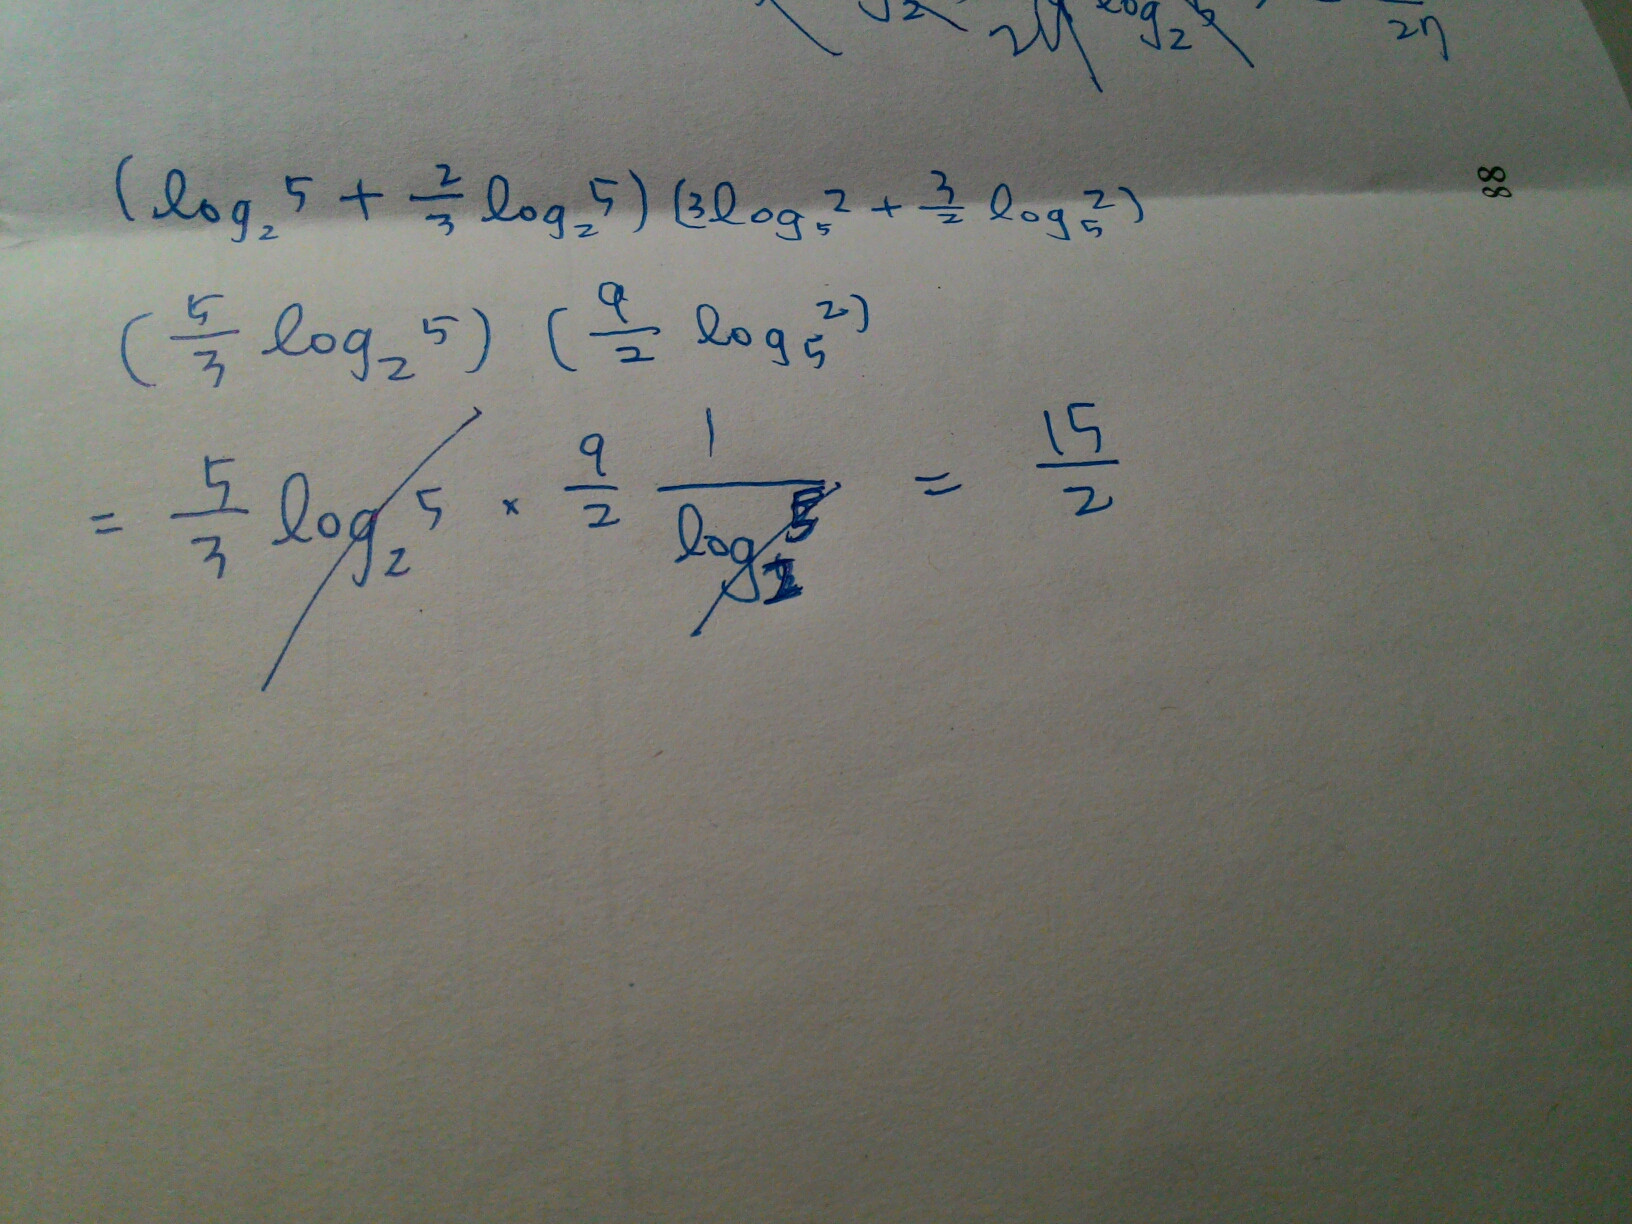 log₂ 2η
88
(log₂5 + 2/3 log₂5) (3log₅2 + 3/2 log₅2)
(5/3 log₂5) (9/2 log₅2)
= 5/3 log₂5 × 9/2 1/log₂5 = 15/2